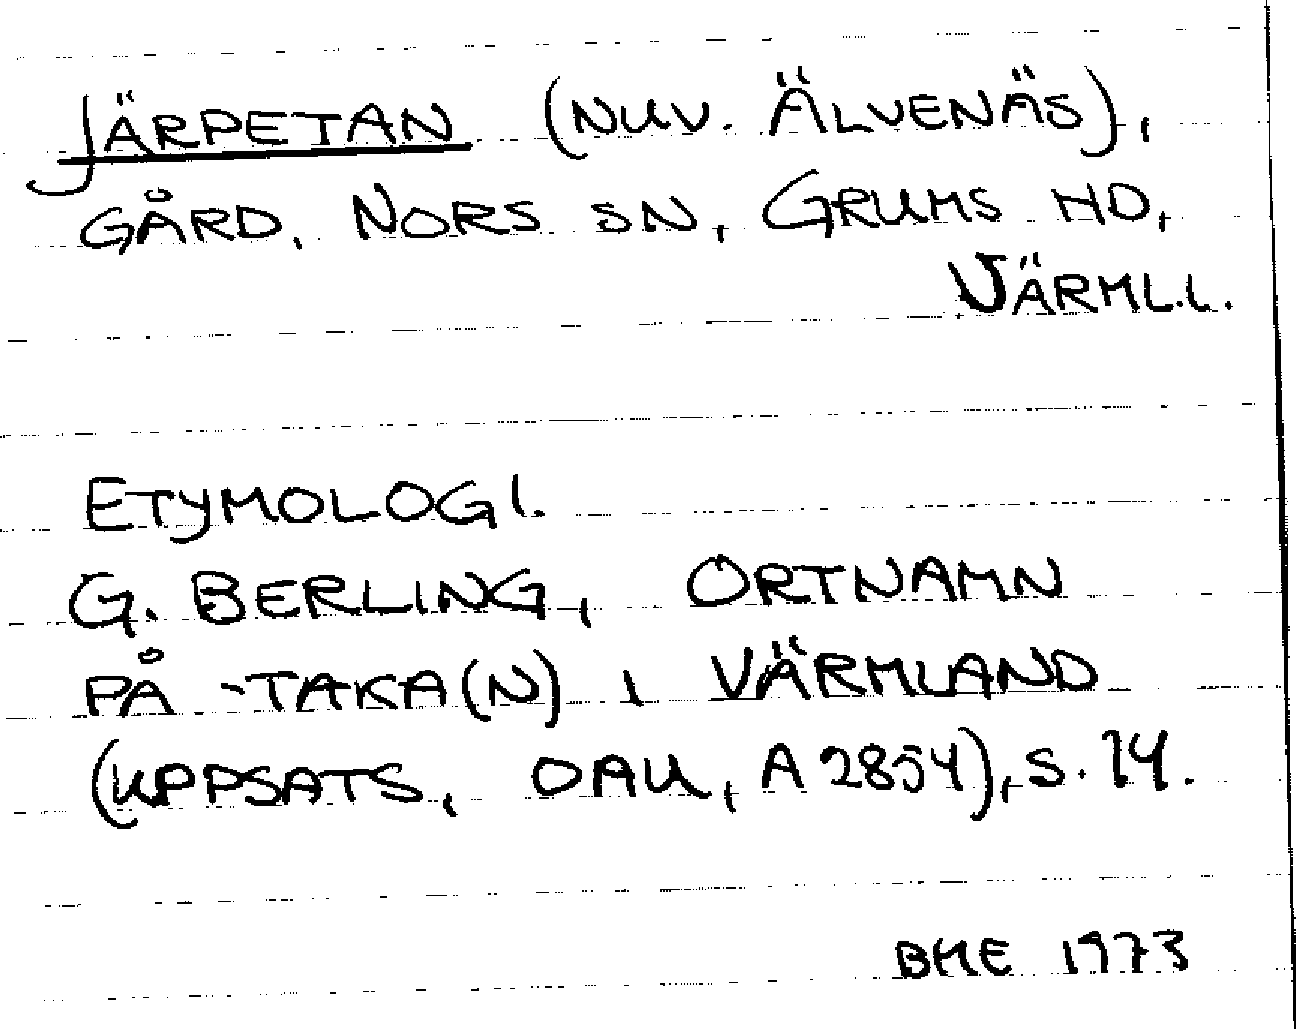 JÄRPETAN (NUV. ÄLVENÄS),
GÅRD, NORS SN, GRUMS HD,
VÄRML.L.
ETYMOLOGI.
G. BERLING, ORTNAMN
PÅ -TAKA(N) I VÄRMLAND
(UPPSATS, OAU, A 2854), S. 14.
BME 1973